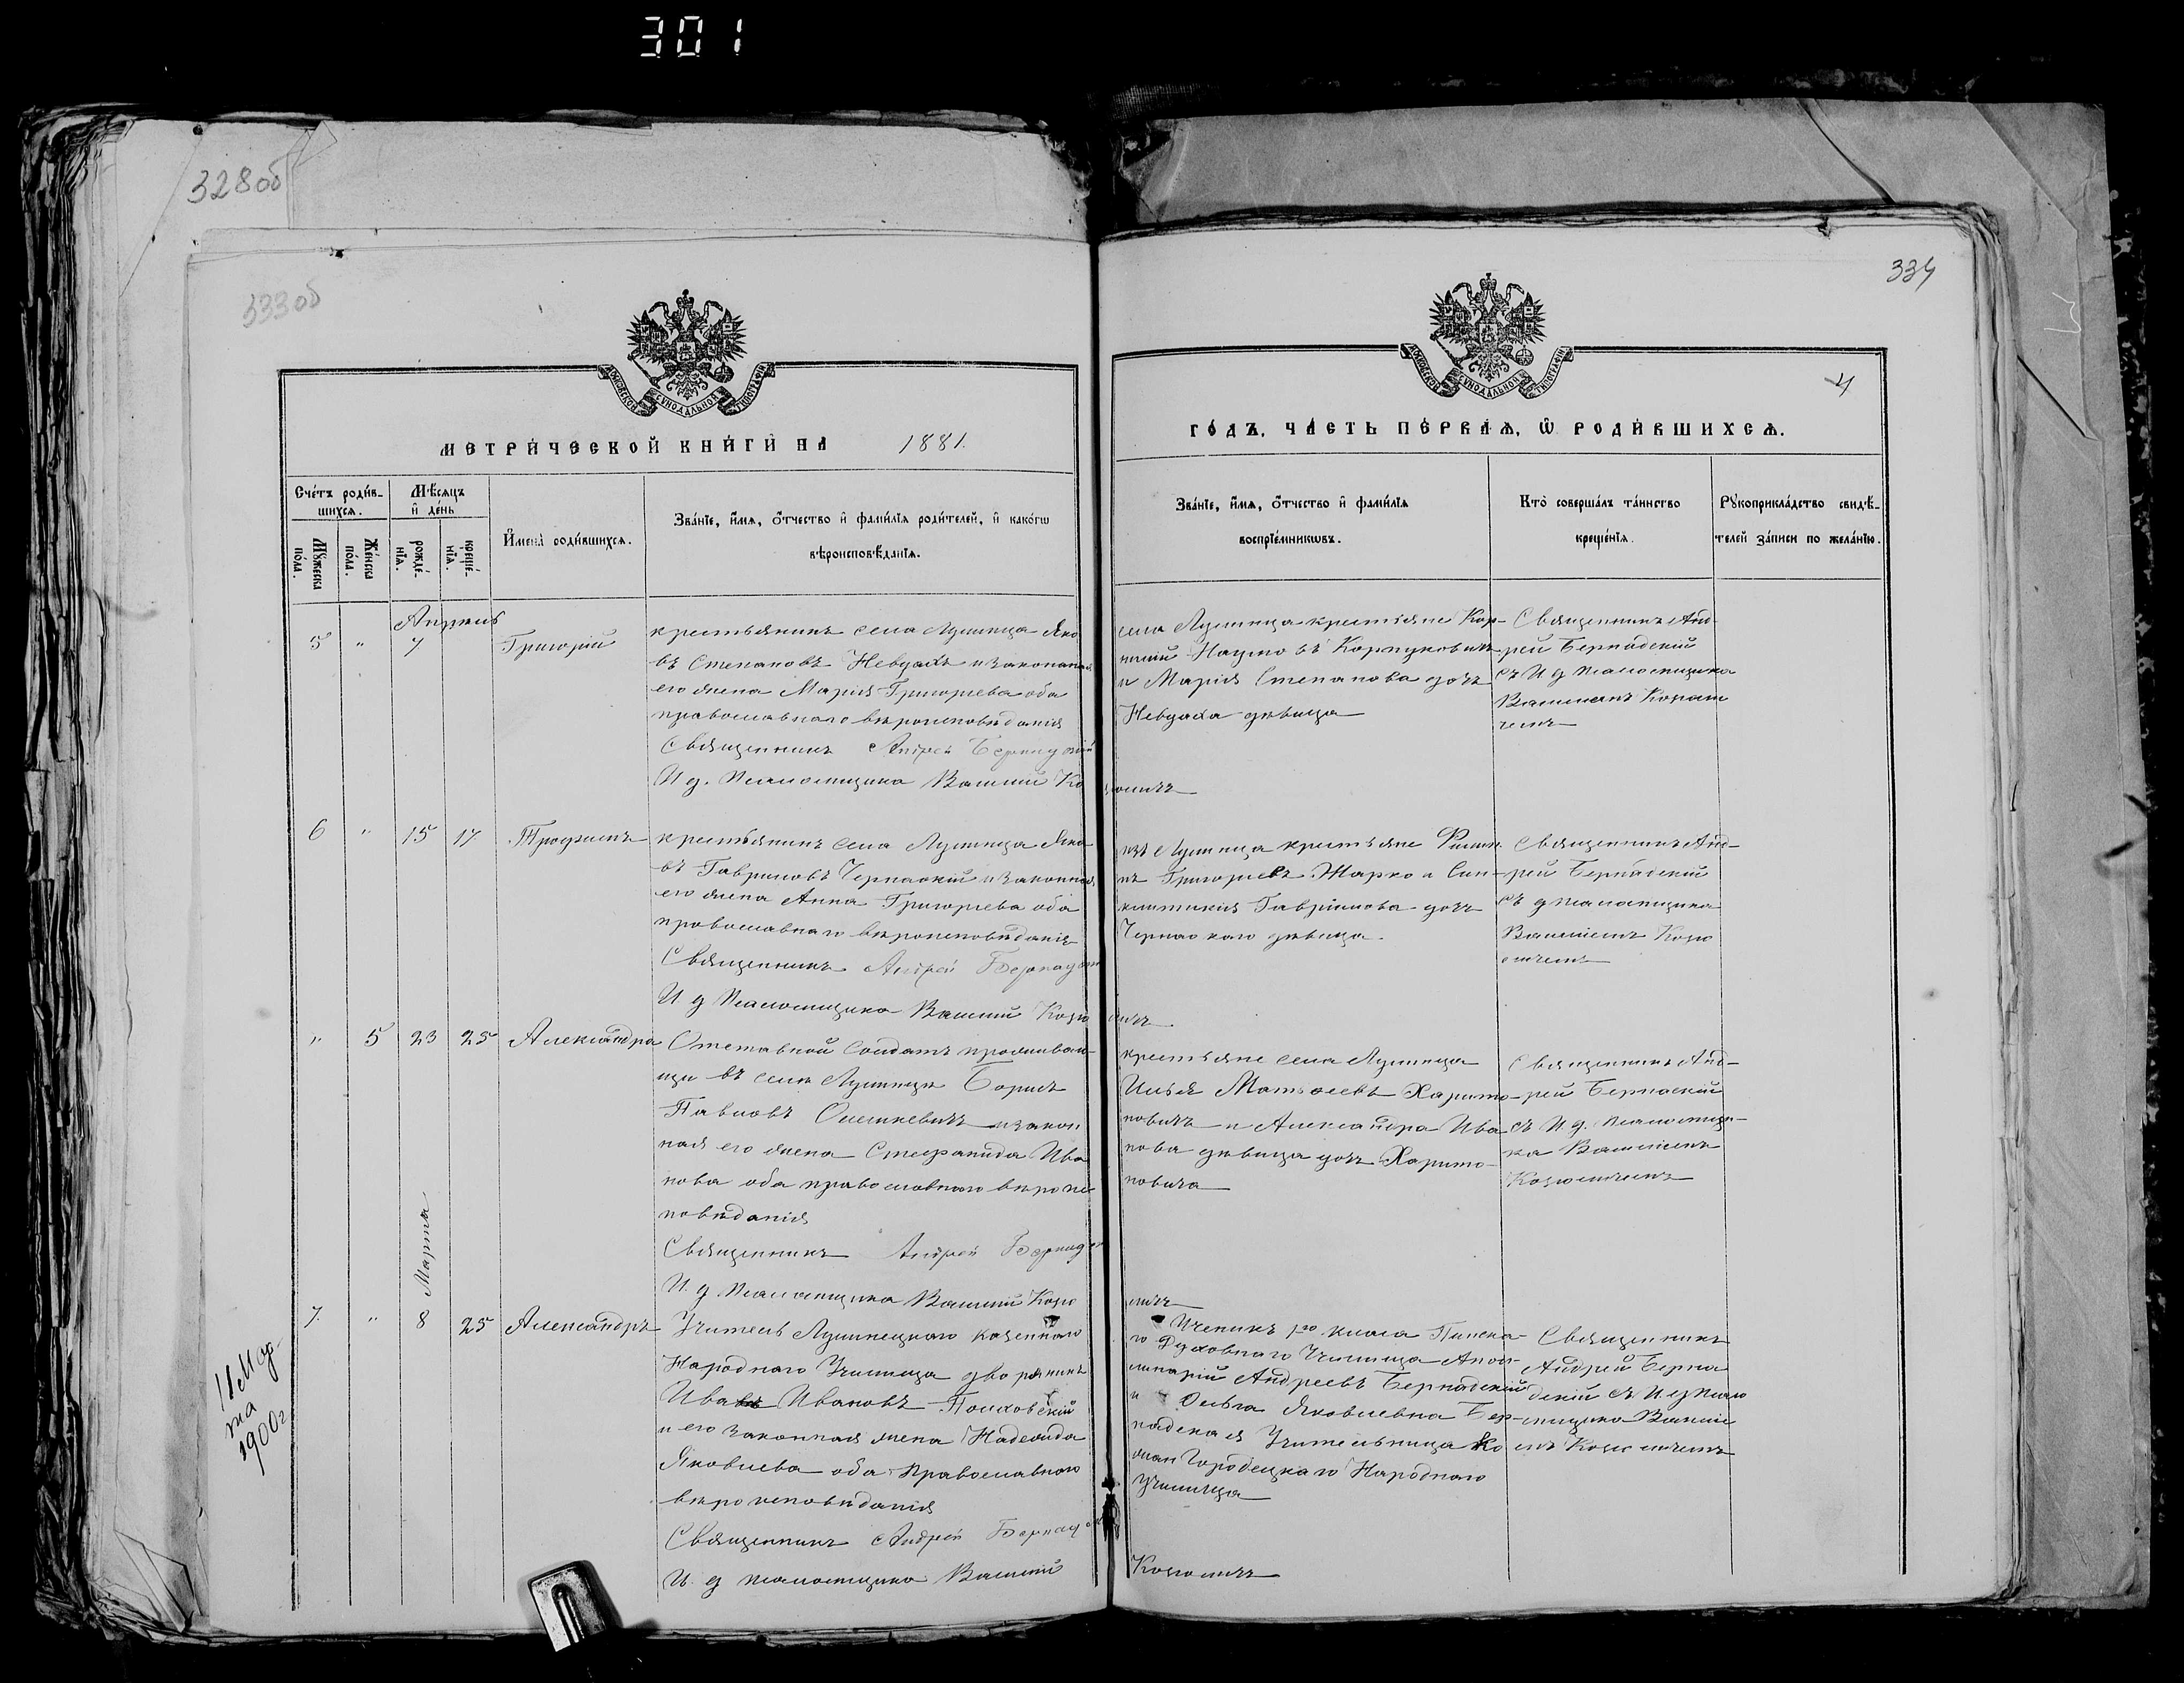 301
328об
333об
334
4
МОСКОВСКОЙ СѴНОДАЛЬНОЙ ТИПОГРАФІИ
МОСКОВСКОЙ СѴНОДАЛЬНОЙ ТИПОГРАФІИ
МЕТРИ́ЧЕСКОЙ КНИ́ГИ НА 1881.
ГО́ДЪ, ЧА́СТЬ ПЕ́РВАѦ, Ѡ РОДИ́ВШИХСѦ.
Сче́тъ роди́в-
шихсѧ.
Мѣ́сѧцъ
и де́нь
Мꙋ́жеска
по́ла.
Же́нска
по́ла.
рожде́-
нїѧ.
креще́-
нїѧ.
И҆мена̀ роди́вшихсѧ.
Зва́нїе, и҆́мѧ, ѻ҆́тчество и҆ фами́лїѧ роди́телей, и҆ како́гѡ
вѣроисповѣ́данїѧ.
Зва́нїе, и҆́мѧ, ѻ҆́тчество и҆ фами́лїѧ
воспрїе́мникѡвъ.
Кто̀ соверша́лъ та́инство
креще́нїѧ.
Рꙋкоприкла́дство свидѣ́-
телей за́писи по жела́нїю.
Апрель
5 " 7 Григорій
крестьянинъ села Лушица Яко
въ Степановъ Невдахъ и законная
его жена Марія Григорьева оба
православнаго вѣроисповѣданія
Священникъ Андрей Бернадскій
И д. псаломщика Василій Ко
села Лушица крестьяне Кор-
нилій Наумовъ Корпуковичъ
и Марія Степанова дочь
Невдаха дѣвица
Священникъ Анд
рей Бернадскій
съ И д псаломщика
6 " 15 17 Трофимъ
крестьянинъ села Лушица Яко
въ Гавриловъ Чернаокій и законная
его жена Анна Григорьева оба
православнаго вѣроисповѣданія
Священникъ Андрей Бернадск
И д псаломщика Василій Козю
крестьяне Филип
пъ Григорьевъ Жарко и Син-
клитикія Гавріилова дочь
дѣвица.
Священникъ Анд-
рей Бернадскій
съ д псаломщика
Василіемъ Козю
" 5 23 25 Александра
Отставной солдатъ проживаю-
щи въ селѣ Лушицѣ Борисъ
Павловъ Олешкевичъ и закон
ная его жена Стефанида Ива
нова оба православнаго вѣроис
повѣданія
Священникъ Андрей Бернадск
И. д псаломщика Василій Козю
крестьяне села Лушица
Илья Матѳеевъ Харито-
новичъ и Александра Ива
нова дѣвица дочь Харито-
новича
Священникъ Анд-
рей Бернаскій
съ И. д. псаломщи-
ка Василіемъ
Марта
7. " 8 25 Александръ
Учитель Лушицкаго казеннаго
Народнаго Училища дворянинъ
Иванъ Ивановъ Полховскій
и его законная жена Надежда
Яковлева оба Православнаго
вѣроисповѣданія
Священникъ Андрей Бернадск
И. д псаломщика Василій
11 Мар
та
1900 г
Ученикъ 1го класа Пинска-
го Духовнаго Училища Апол-
линарій Андреевъ Бернадскій
и Ольга Яковлевна Бер-
надская Учительница Ко
жан Городецкаго Народнаго
Училища
Священникъ
Андрей Берна
дскій съ И. д псало
мщика Василі